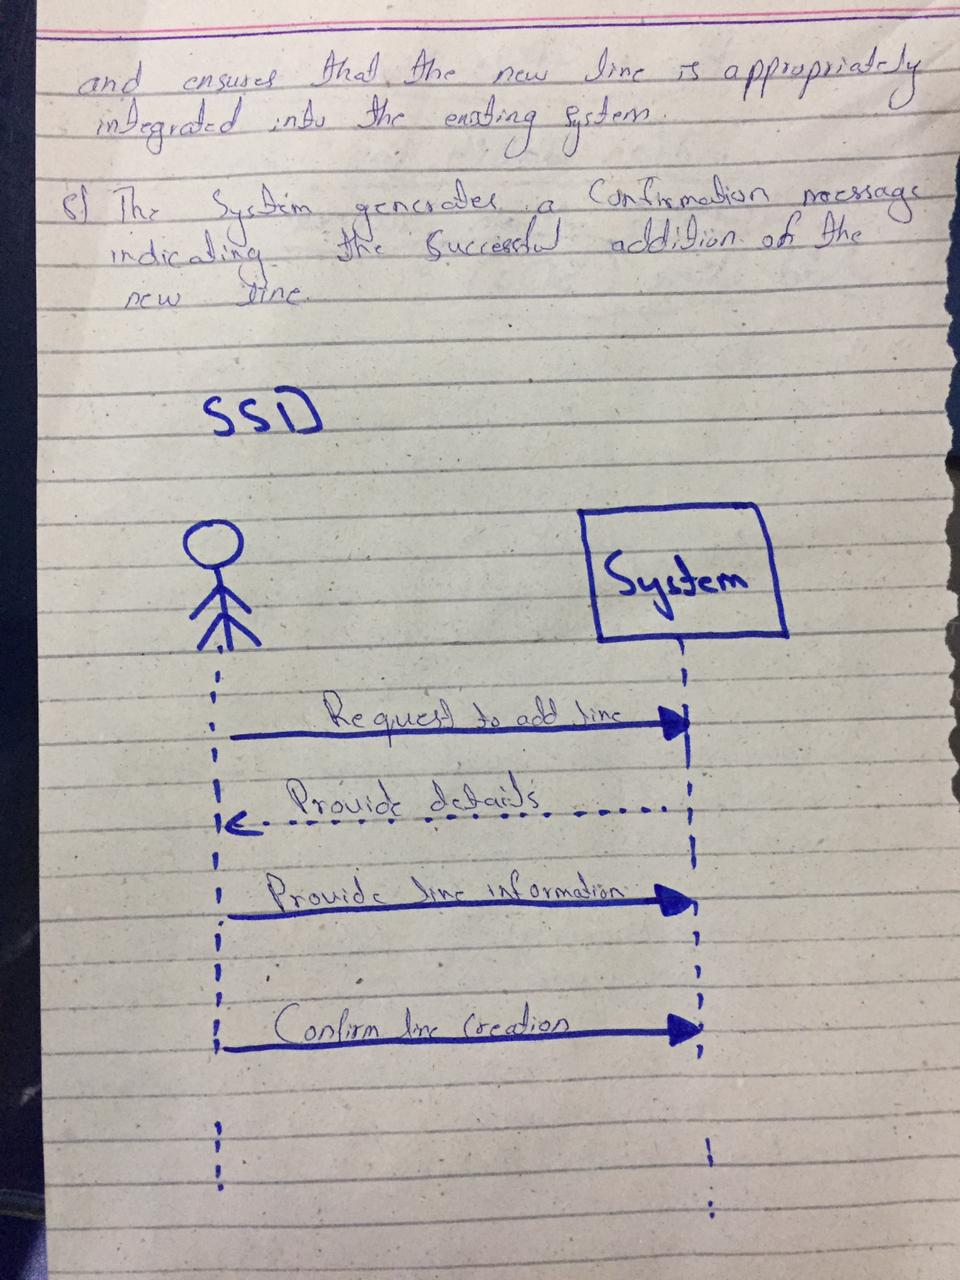 and ensures that the new line is appropriately
integrated into the exsting system.
5) The System generates a Confirmation message
indicating the Successful addition of the
new line.
SSD
System
Request to add line
Provide details
Provide line information
Confirm line Creation